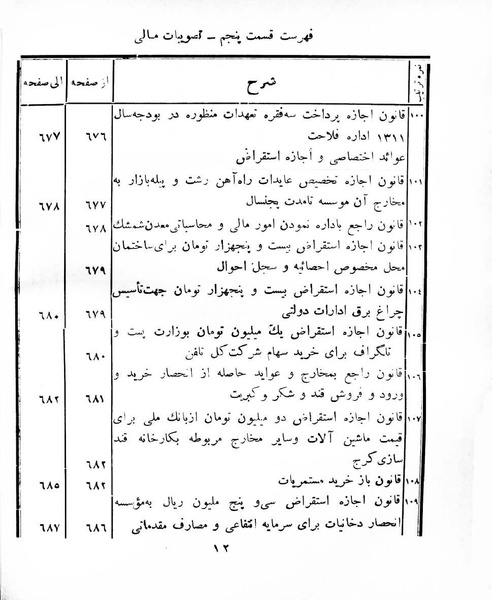 فهرست قسمت پنجم ــ تصویبات مالی
نمره ترتیب شرح از صفحه الی صفحه
۱۰۰ قانون اجازه پرداخت سه‌فقره تعهدات منظوره در بودجه‌سال
۱۳۱۱ اداره فلاحت ۶۷۶ ۶۷۷
عوائد اختصاصی و اجازه استقراض
۱۰۱ قانون اجازه تخصیص عایدات راه‌آهن رشت و پیله‌بازار به
مخارج آن موسسه تامدت پنجسال ۶۷۷ ۶۷۸
۱۰۲ قانون راجع باداره نمودن امور مالی و محاسباتی معدن‌شمشک ۶۷۸
۱۰۳ قانون اجازه استقراض بیست و پنجهزار تومان برای‌ساختمان
محل مخصوص احصائیه و سجل احوال ۶۷۹
۱۰۴ قانون اجازه استقراض بیست و پنجهزار تومان جهت‌تأسیس
چراغ برق ادارات دولتی ۶۷۹ ۶۸۰
۱۰۵ قانون اجازه استقراض یك میلیون تومان بوزارت پست و
تلگراف برای خرید سهام شرکت‌کل تلفن ۶۸۰
۱۰۶ قانون راجع بمخارج و عواید حاصله از انحصار خرید و
ورود و فروش قند و شکر و کبریت ۶۸۱ ۶۸۲
۱۰۷ قانون اجازه استقراض دو میلیون تومان ازبانك ملی برای
قیمت ماشین آلات وسایر مخارج مربوطه بکارخانه قند
سازی‌کرج ۶۸۲
۱۰۸ قانون باز خرید مستمریات ۶۸۲ ۶۸۵
۱۰۹ قانون اجازه استقراض سی‌و پنج ملیون ریال به‌مؤسسه
انحصار دخانیات برای سرمایه انتفاعی و مصارف مقدماتی ۶۸۶ ۶۸۷
۱۲